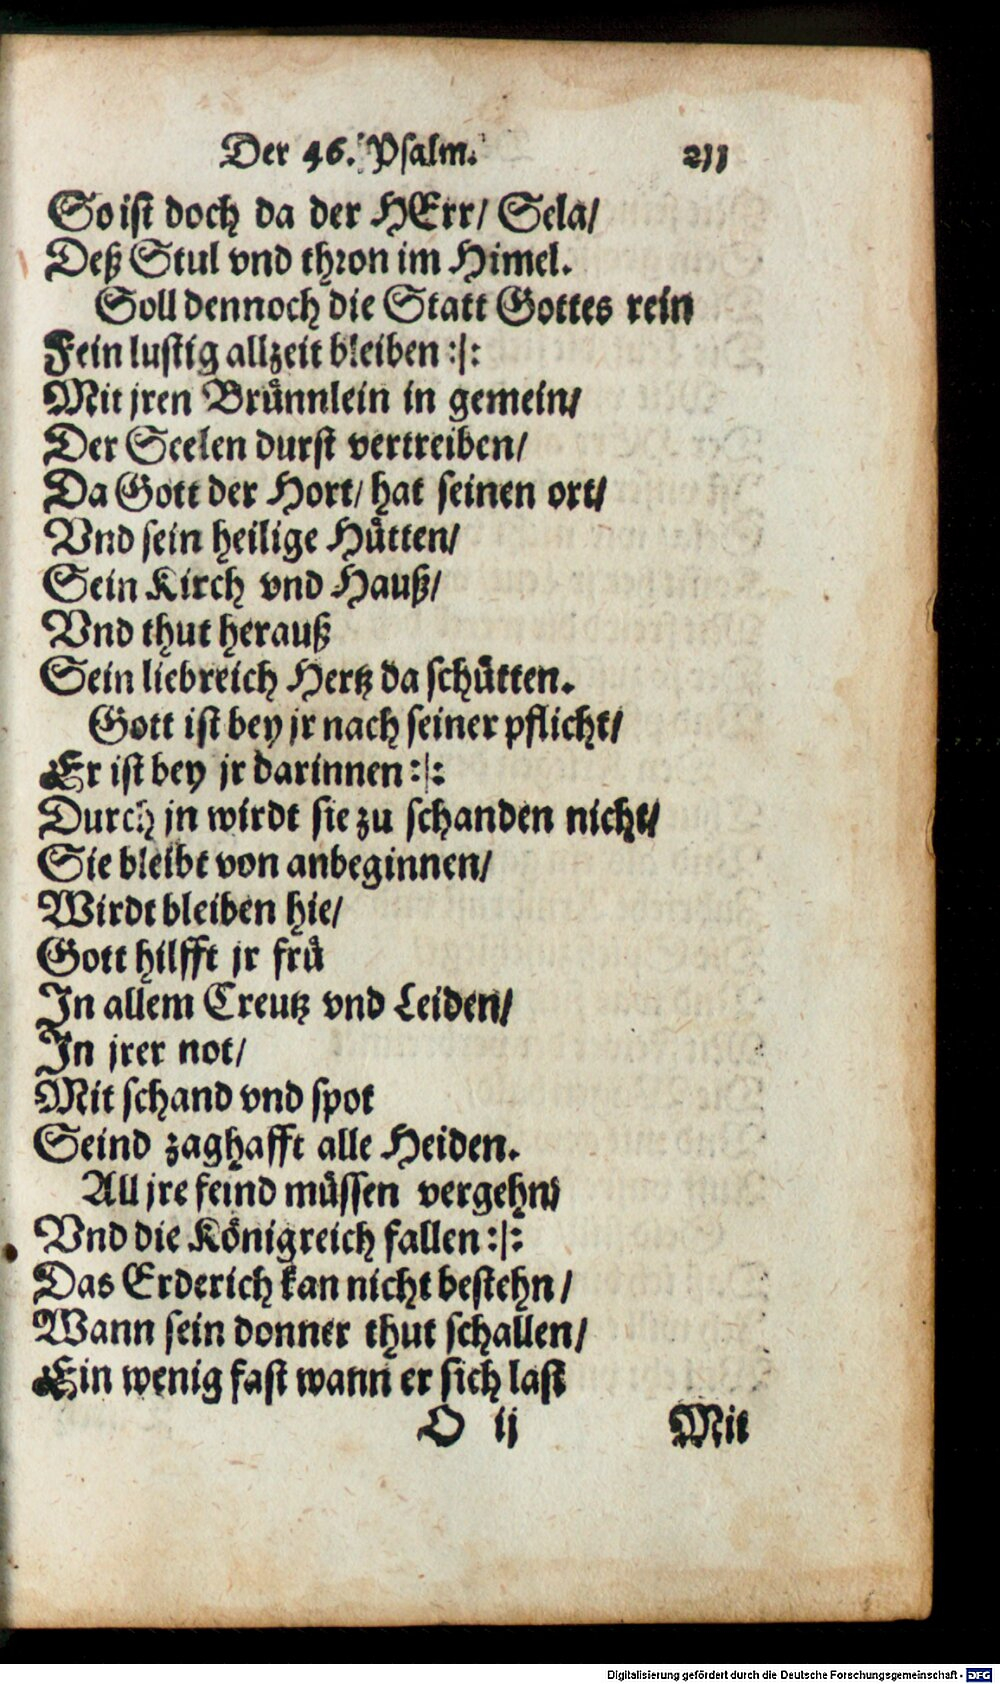 Der 46. Psalm. 211
So ist doch da der HErr/ Sela/
Deß Stul vnd thron im Himel.
Soll dennoch die Statt Gottes rein
Fein lustig allzeit bleiben :|:
Mit jren Bruͤnnlein in gemein/
Der Seelen durst vertreiben/
Da Gott der Hort/ hat seinen ort/
Vnd sein heilige Huͤtten/
Sein Kirch vnd Hauß/
Vnd thut herauß
Sein liebreich Hertz da schuͤtten.
Gott ist bey jr nach seiner pflicht/
Er ist bey jr darinnen :|:
Durch jn wirdt sie zu schanden nicht/
Sie bleibt von anbeginnen/
Wirdt bleiben hie/
Gott hilfft jr fruͤ
In allem Creutz vnd Leiden/
In jrer not/
Mit schand vnd spot
Seind zaghafft alle Heiden.
All jre feind muͤssen vergehn/
Vnd die Koͤnigreich fallen :|:
Das Erderich kan nicht bestehn/
Wann sein donner thut schallen/
Ein wenig fast wann er sich last
O ij Mit
Digitalisierung gefördert durch die Deutsche Forschungsgemeinschaft - DFG